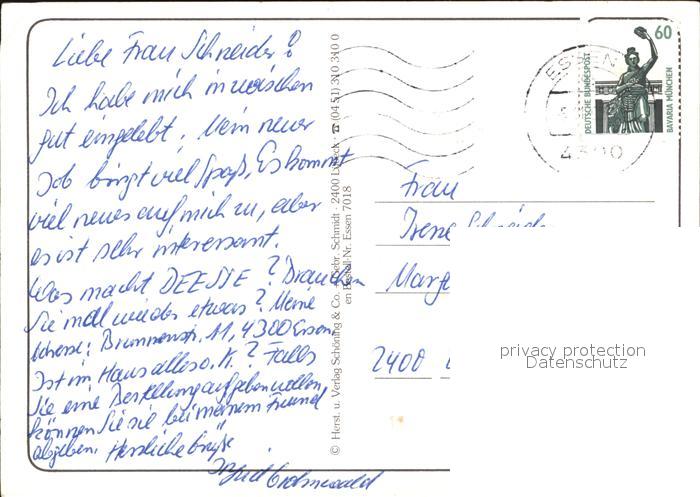 Liebe Frau Schneider!
Ich habe mich inzwischen
gut eingelebt. Mein neuer
Job bringt viel Spaß. Es kommt
viel neues auf mich zu, aber
es ist sehr interessant.
Was macht DEESSE? Brauchen
Sie mal wieder etwas? Meine
Adresse: Brunnenstr. 11, 4300 Essen.
Ist im Haus alles o.k.? Falls
Sie eine Bestellung aufgeben wollen,
können Sie sie bei meinem Freund
abgeben. Herzliche Grüße
© Herst. u. Verlag Schöning & Co. + Gebr. Schmidt · 2400 Lübeck · ☎ (04 51) 310 310
en Bestell-Nr. Essen 7018
60
DEUTSCHE BUNDESPOST
BAVARIA MÜNCHEN
ESSEN
4300
Frau
Irene Schneider
2400
privacy protection
Datenschutz